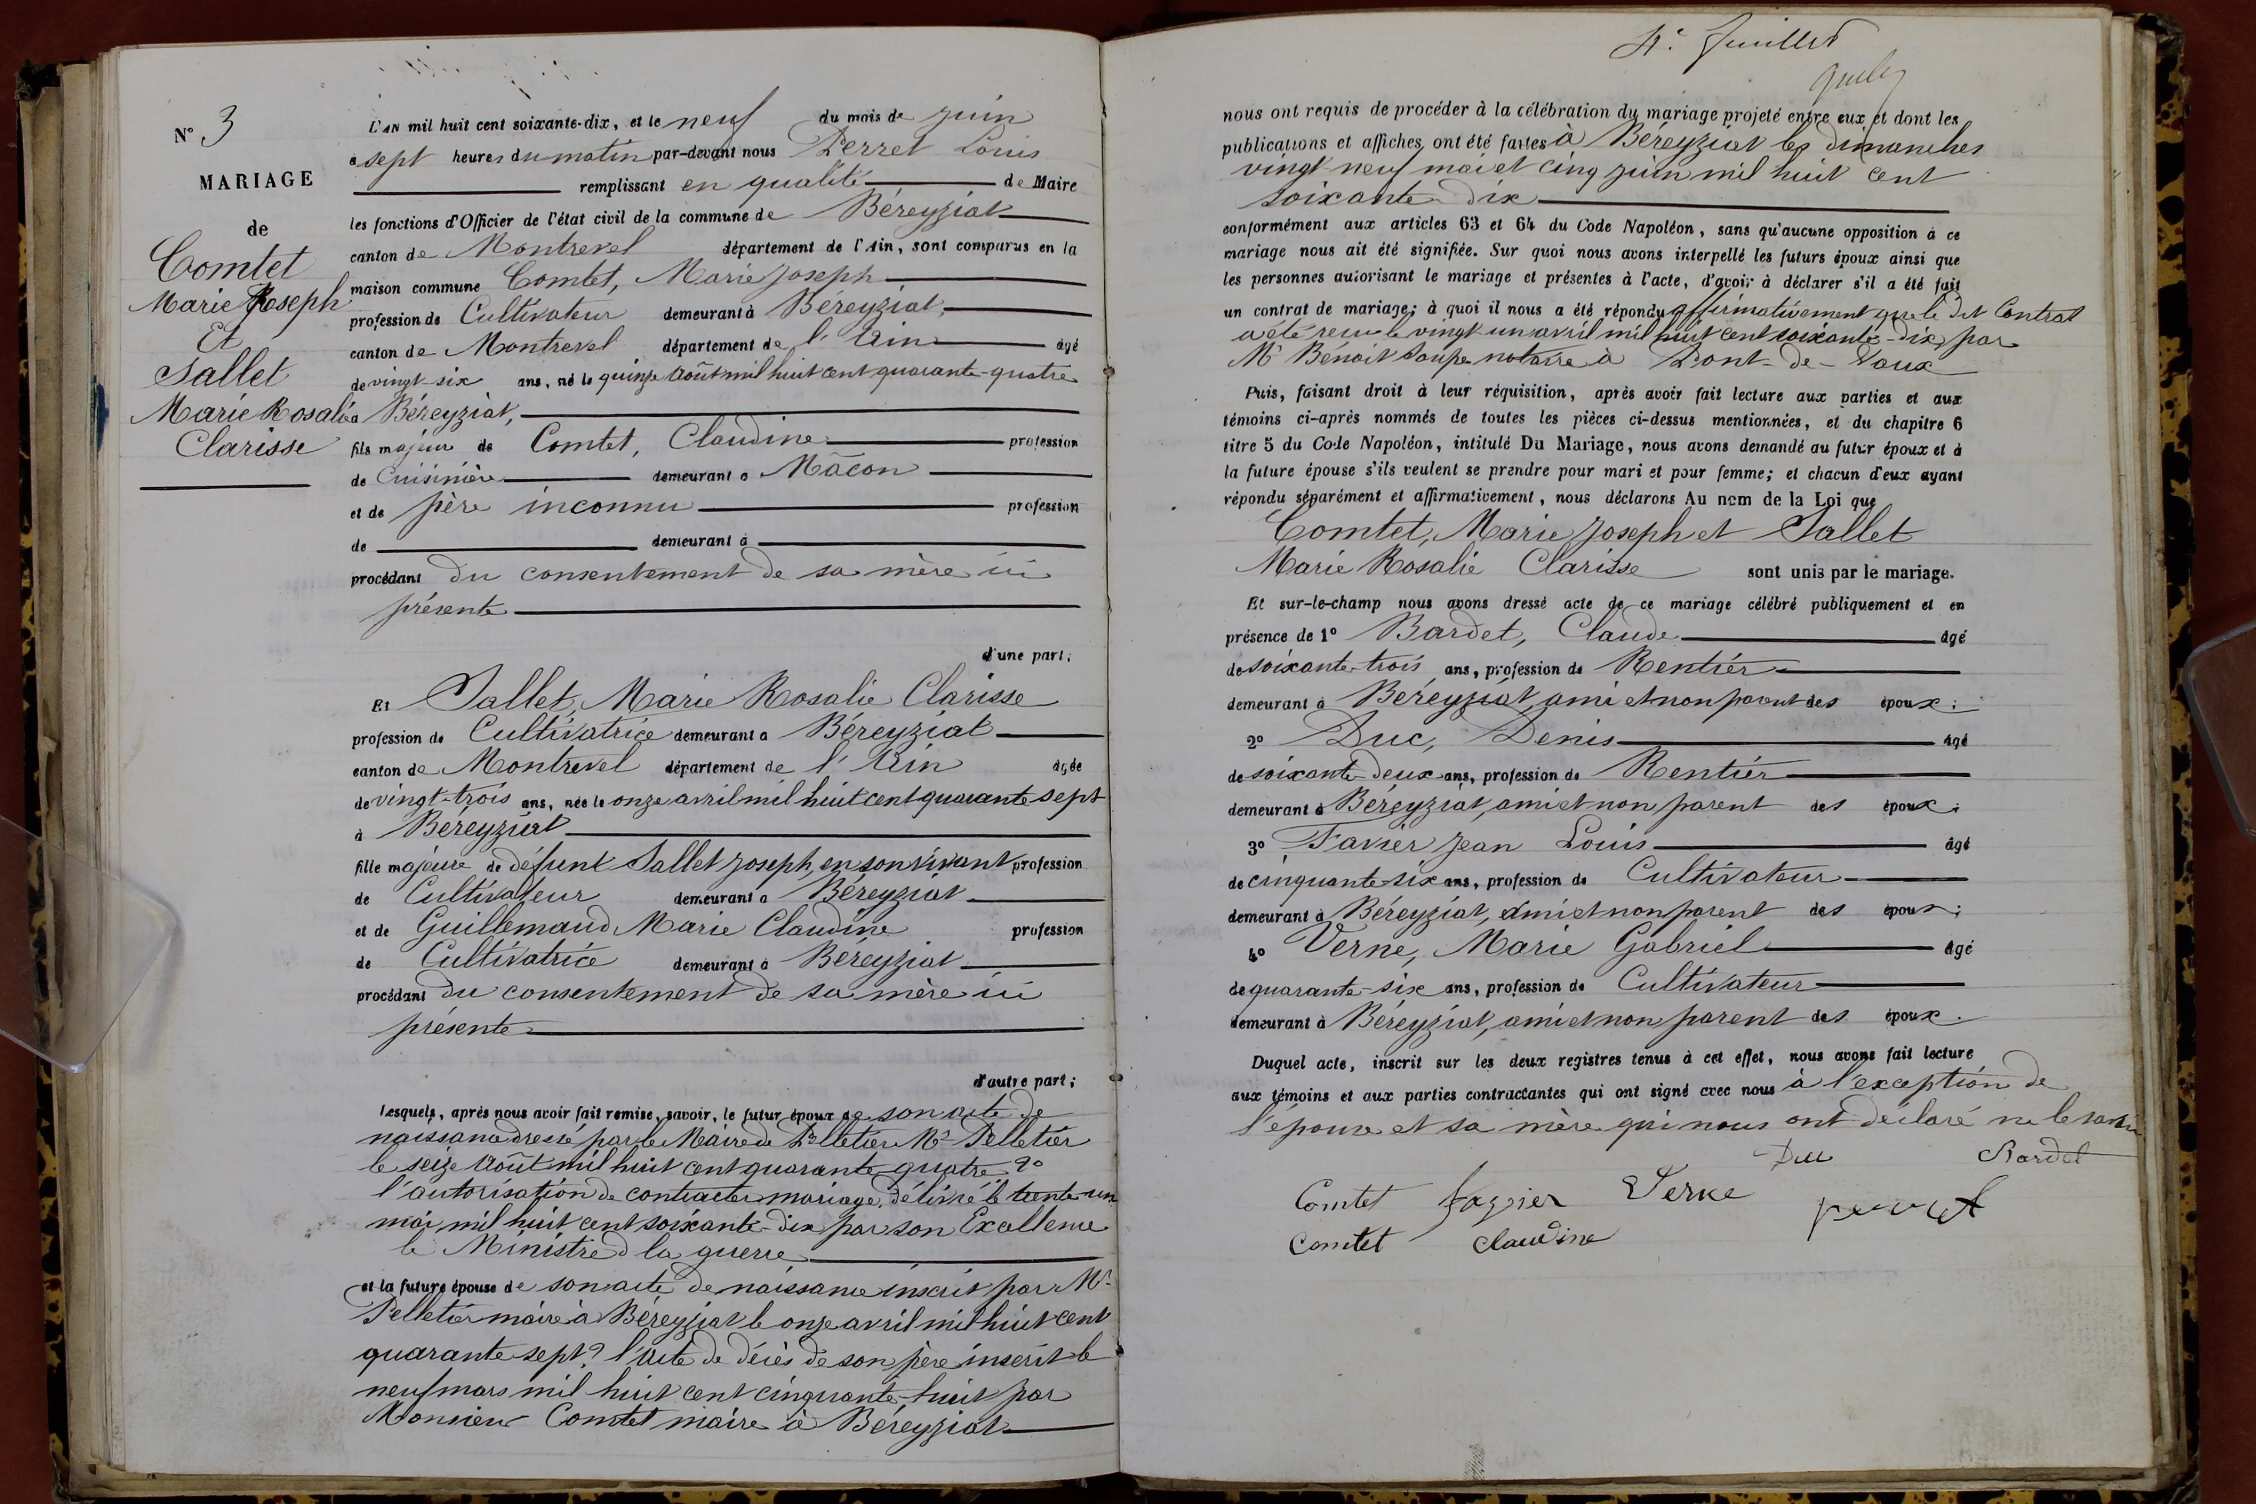 N° 3
MARIAGE
de
Comtet
Marie Joseph
Et
Sallet
Marie Rosalie
Clarisse
L'AN mil huit cent soixante-dix, et le neuf du mois de juin
à sept heures du matin par-devant nous Perret Louis
remplissant en qualité de Maire
les fonctions d'Officier de l'état civil de la commune de Béreyziat
canton de Montrevel département de l'Ain, sont comparus en la
maison commune Comtet, Marie Joseph
profession de Cultivateur demeurant à Béreyziat,
canton de Montrevel département de l'Ain âgé
de vingt-six ans, né le quinze Août mil huit cent quarante-quatre
a Béreyziat,
fils majeur de Comtet, Claudine profession
de Cuisinière demeurant à Mâcon
et de père inconnu profession
de demeurant à
procédant du consentement de sa mère ici
présente
d'une part;
Et Sallet, Marie Rosalie Clarisse
profession de Cultivatrice demeurant à Béreyziat
canton de Montrevel département de l'Ain âgée
de vingt-trois ans, née le onze avril mil huit cent quarante sept
à Béreyziat
fille majeure de défunt Sallet Joseph, en son vivant profession
de Cultivateur demeurant à Béreyziat
et de Guillemaud Marie Claudine profession
de Cultivatrice demeurant à Béreyziat
procédant du consentement de sa mère ici
présente
d'autre part;
Lesquels, après nous avoir fait remise, savoir, le futur époux de son acte de
naissance dressé par le Maire de Pelletier Mr Pelletier
le seize Août mil huit cent quarante quatre 2°
l'autorisation de contracter mariage, délivré le trente-un
mai mil huit cent soixante-dix par son Excellence
le Ministre d la guerre
et la future épouse de son acte de naissance inscrit par Mr
Pelletier maire à Béreyziat le onze avril mil huit cent
quarante sept 2° l'Acte de décès de son père inscrit le
neuf mars mil huit cent cinquante-huit par
Monsieur Comtet maire à Béreyziat
4e feuillet
nous ont requis de procéder à la célébration du mariage projeté entre eux et dont les
publications et affiches ont été faites à Béreyziat les dimanches
vingt neuf mai et cinq juin mil huit cent
soixante-dix
conformément aux articles 63 et 64 du Code Napoléon, sans qu'aucune opposition à ce
mariage nous ait été signifiée. Sur quoi nous avons interpellé les futurs époux ainsi que
les personnes autorisant le mariage et présentes à l'acte, d'avoir à déclarer s'il a été fait
un contrat de mariage; à quoi il nous a été répondu affirmativement que le dit Contrat
a été reçu le vingt un avril mil huit cent soixante-dix, par
Mr Benoit Soupe notaire à Pont-de-Vaux
Puis, faisant droit à leur réquisition, après avoir fait lecture aux parties et aux
témoins ci-après nommés de toutes les pièces ci-dessus mentionnées, et du chapitre 6
titre 5 du Code Napoléon, intitulé Du Mariage, nous avons demandé au futur époux et à
la future épouse s'ils veulent se prendre pour mari et pour femme; et chacun d'eux ayant
répondu séparément et affirmativement, nous déclarons Au nom de la Loi que
Comtet, Marie Joseph et Sallet
Marie Rosalie Clarisse sont unis par le mariage.
Et sur-le-champ nous avons dressé acte de ce mariage célébré publiquement et en
présence de 1° Bardet, Claude âgé
de soixante-trois ans, profession de Rentier
demeurant à Béreyziat, ami et non parent des époux;
2° Duc, Denis âgé
de soixante-deux ans, profession de Rentier
demeurant à Béreyziat, ami et non parent des époux;
3° Favier Jean Louis âgé
de cinquante-six ans, profession de Cultivateur
demeurant à Béreyziat, ami et non parent des époux;
4° Verne, Marie Gabriel âgé
de quarante-six ans, profession de Cultivateur
demeurant à Béreyziat, ami et non parent des époux.
Duquel acte, inscrit sur les deux registres tenus à cet effet, nous avons fait lecture
aux témoins et aux parties contractantes qui ont signé avec nous à l'exception de
l'épouse et sa mère qui nous ont déclaré ne le savoir
Duc Bardet
Comtet favier Verne perret
Comtet Claudine